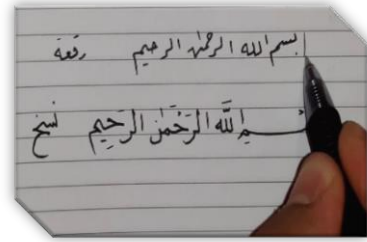 بسم الله الرحمن الرحيم رقعة
بسم اللَّه الرَّحْمَن الرَّحِيم نسخ